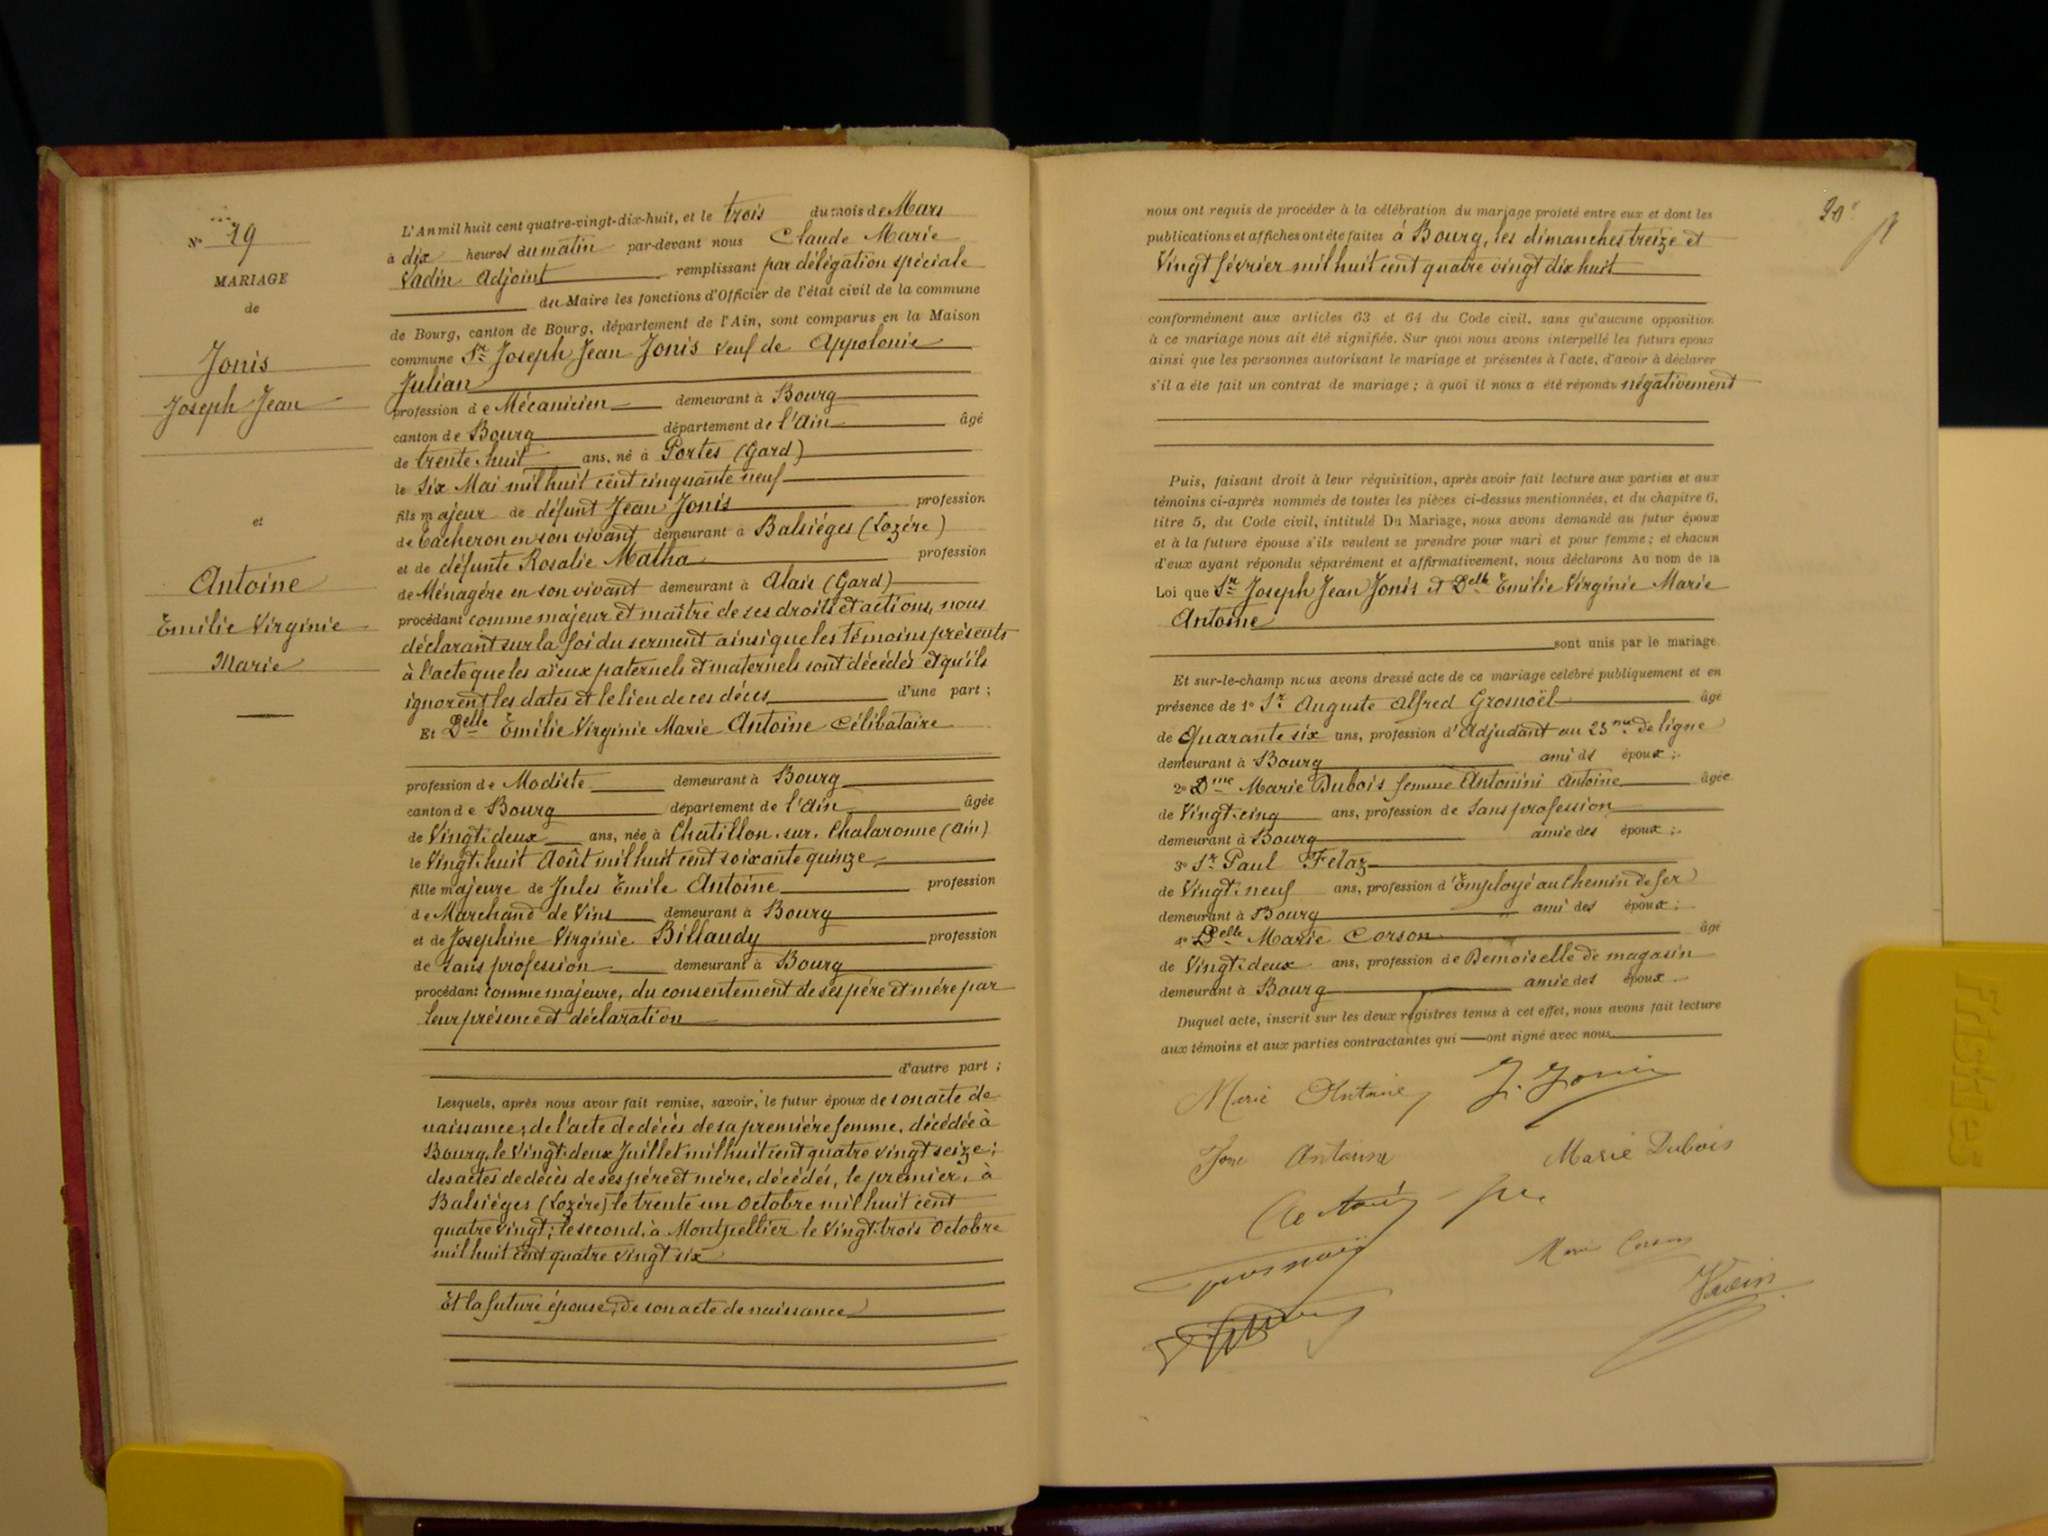 N° 19
MARIAGE
de
Jonis
Joseph Jean
et
Antoine
Emilie Virginie
Marie
L'An mil huit cent quatre-vingt-dix-huit, et le trois du mois de Mars
à dix heures du matin par-devant nous Claude Marie
Vadin Adjoint remplissant par délégation spéciale
du Maire les fonctions d'Officier de l'état civil de la commune
de Bourg, canton de Bourg, département de l'Ain, sont comparus en la Maison
commune Sr Joseph Jean Jonis veuf de Appolonie
Julian
profession de Mécanicien demeurant à Bourg
canton de Bourg département de l'Ain âgé
de trente-huit ans, né à Portes (Gard)
le Six Mai mil huit cent cinquante neuf
fils majeur de défunt Jean Jonis profession
de Vacheron en son vivant demeurant à Balsièges (Lozère)
et de défunte Rosalie Matha profession
de Ménagère en son vivant demeurant à Alais (Gard)
procédant comme majeur et maître de ses droits et actions, nous
déclarant sur la foi du serment ainsi que les témoins présents
à l'acte que les aïeux paternels et maternels sont décédés et qu'ils
ignorent les dates et le lieu de ces décès d'une part ;
Et Delle Emilie Virginie Marie Antoine Célibataire
profession de Modiste demeurant à Bourg
canton de Bourg département de l'Ain âgée
de Vingt-deux ans, née à Chatillon-sur-Chalaronne (Ain)
le Vingt-huit Août mil huit cent soixante quinze
fille majeure de Jules Emile Antoine profession
de Marchand de Vins demeurant à Bourg
et de Josephine Virginie Billaudy profession
de sans profession demeurant à Bourg
procédant comme majeure, du consentement de ses père et mère par
leur présence et déclaration
d'autre part ;
Lesquels, après nous avoir fait remise, savoir, le futur époux de son acte de
naissance ; de l'acte de décès de sa première femme, décédée à
Bourg, le Vingt-deux Juillet mil huit cent quatre vingt seize ;
des actes de décès de ses père et mère, décédés, le premier, à
Balsièges (Lozère) le trente un Octobre mil huit cent
quatre vingt ; le second, à Montpellier le Vingt-trois Octobre
mil huit cent quatre vingt six
Et la future épouse ; de son acte de naissance
nous ont requis de procéder à la célébration du mariage projeté entre eux et dont les
publications et affiches ont été faites à Bourg, les dimanches treize et
Vingt février mil huit cent quatre vingt dix huit
conformément aux articles 63 et 64 du Code civil, sans qu'aucune opposition
à ce mariage nous ait été signifiée. Sur quoi nous avons interpellé les futurs époux
ainsi que les personnes autorisant le mariage et présentes à l'acte, d'avoir à déclarer
s'il a été fait un contrat de mariage ; à quoi il nous a été répondu négativement
Puis, faisant droit à leur réquisition, après avoir fait lecture aux parties et aux
témoins ci-après nommés de toutes les pièces ci-dessus mentionnées, et du chapitre 6,
titre 5, du Code civil, intitulé Du Mariage, nous avons demandé au futur époux
et à la future épouse s'ils veulent se prendre pour mari et pour femme ; et chacun
d'eux ayant répondu séparément et affirmativement, nous déclarons Au nom de la
Loi que Sr Joseph Jean Jonis et Delle Emilie Virginie Marie
Antoine
sont unis par le mariage
Et sur-le-champ nous avons dressé acte de ce mariage célébré publiquement et en
présence de 1° Sr Auguste Alfred Grosnoël âgé
de Quarante six ans, profession d'Adjudant au 23me de ligne
demeurant à Bourg ami des époux ;
2° Dme Marie Dubois femme Antonini Antoine âgée
de Vingt-cinq ans, profession de Sans profession
demeurant à Bourg amie des époux ;
3° Sr Paul Felaz
de Vingt-neuf ans, profession d'Employé au Chemin de fer
demeurant à Bourg ami des époux ;
4° Delle Marie Corson âgé
de Vingt-deux ans, profession de Demoiselle de magasin
demeurant à Bourg amie des époux
Duquel acte, inscrit sur les deux registres tenus à cet effet, nous avons fait lecture
aux témoins et aux parties contractantes qui ont signé avec nous
Marie Antoine J. Jonis
Antoine Marie Dubois
Grosnoël Marie Corson
Vadin
Fiskes